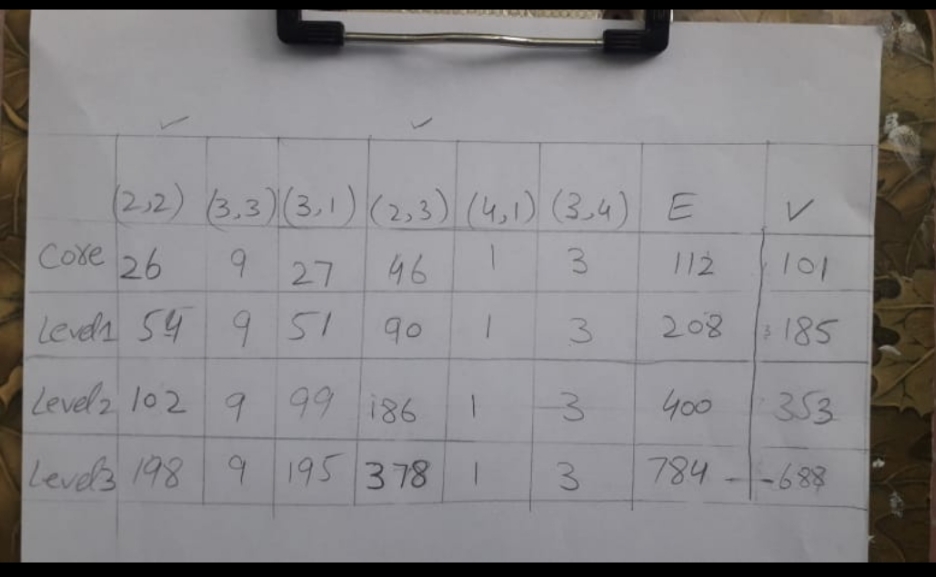 (2,2) (3,3) (3,1) (2,3) (4,1) (3,4) E V
Core 26 9 27 46 1 3 112 101
Level1 54 9 51 90 1 3 208 185
Level2 102 9 99 186 1 3 400 353
Level3 198 9 195 378 1 3 784 688